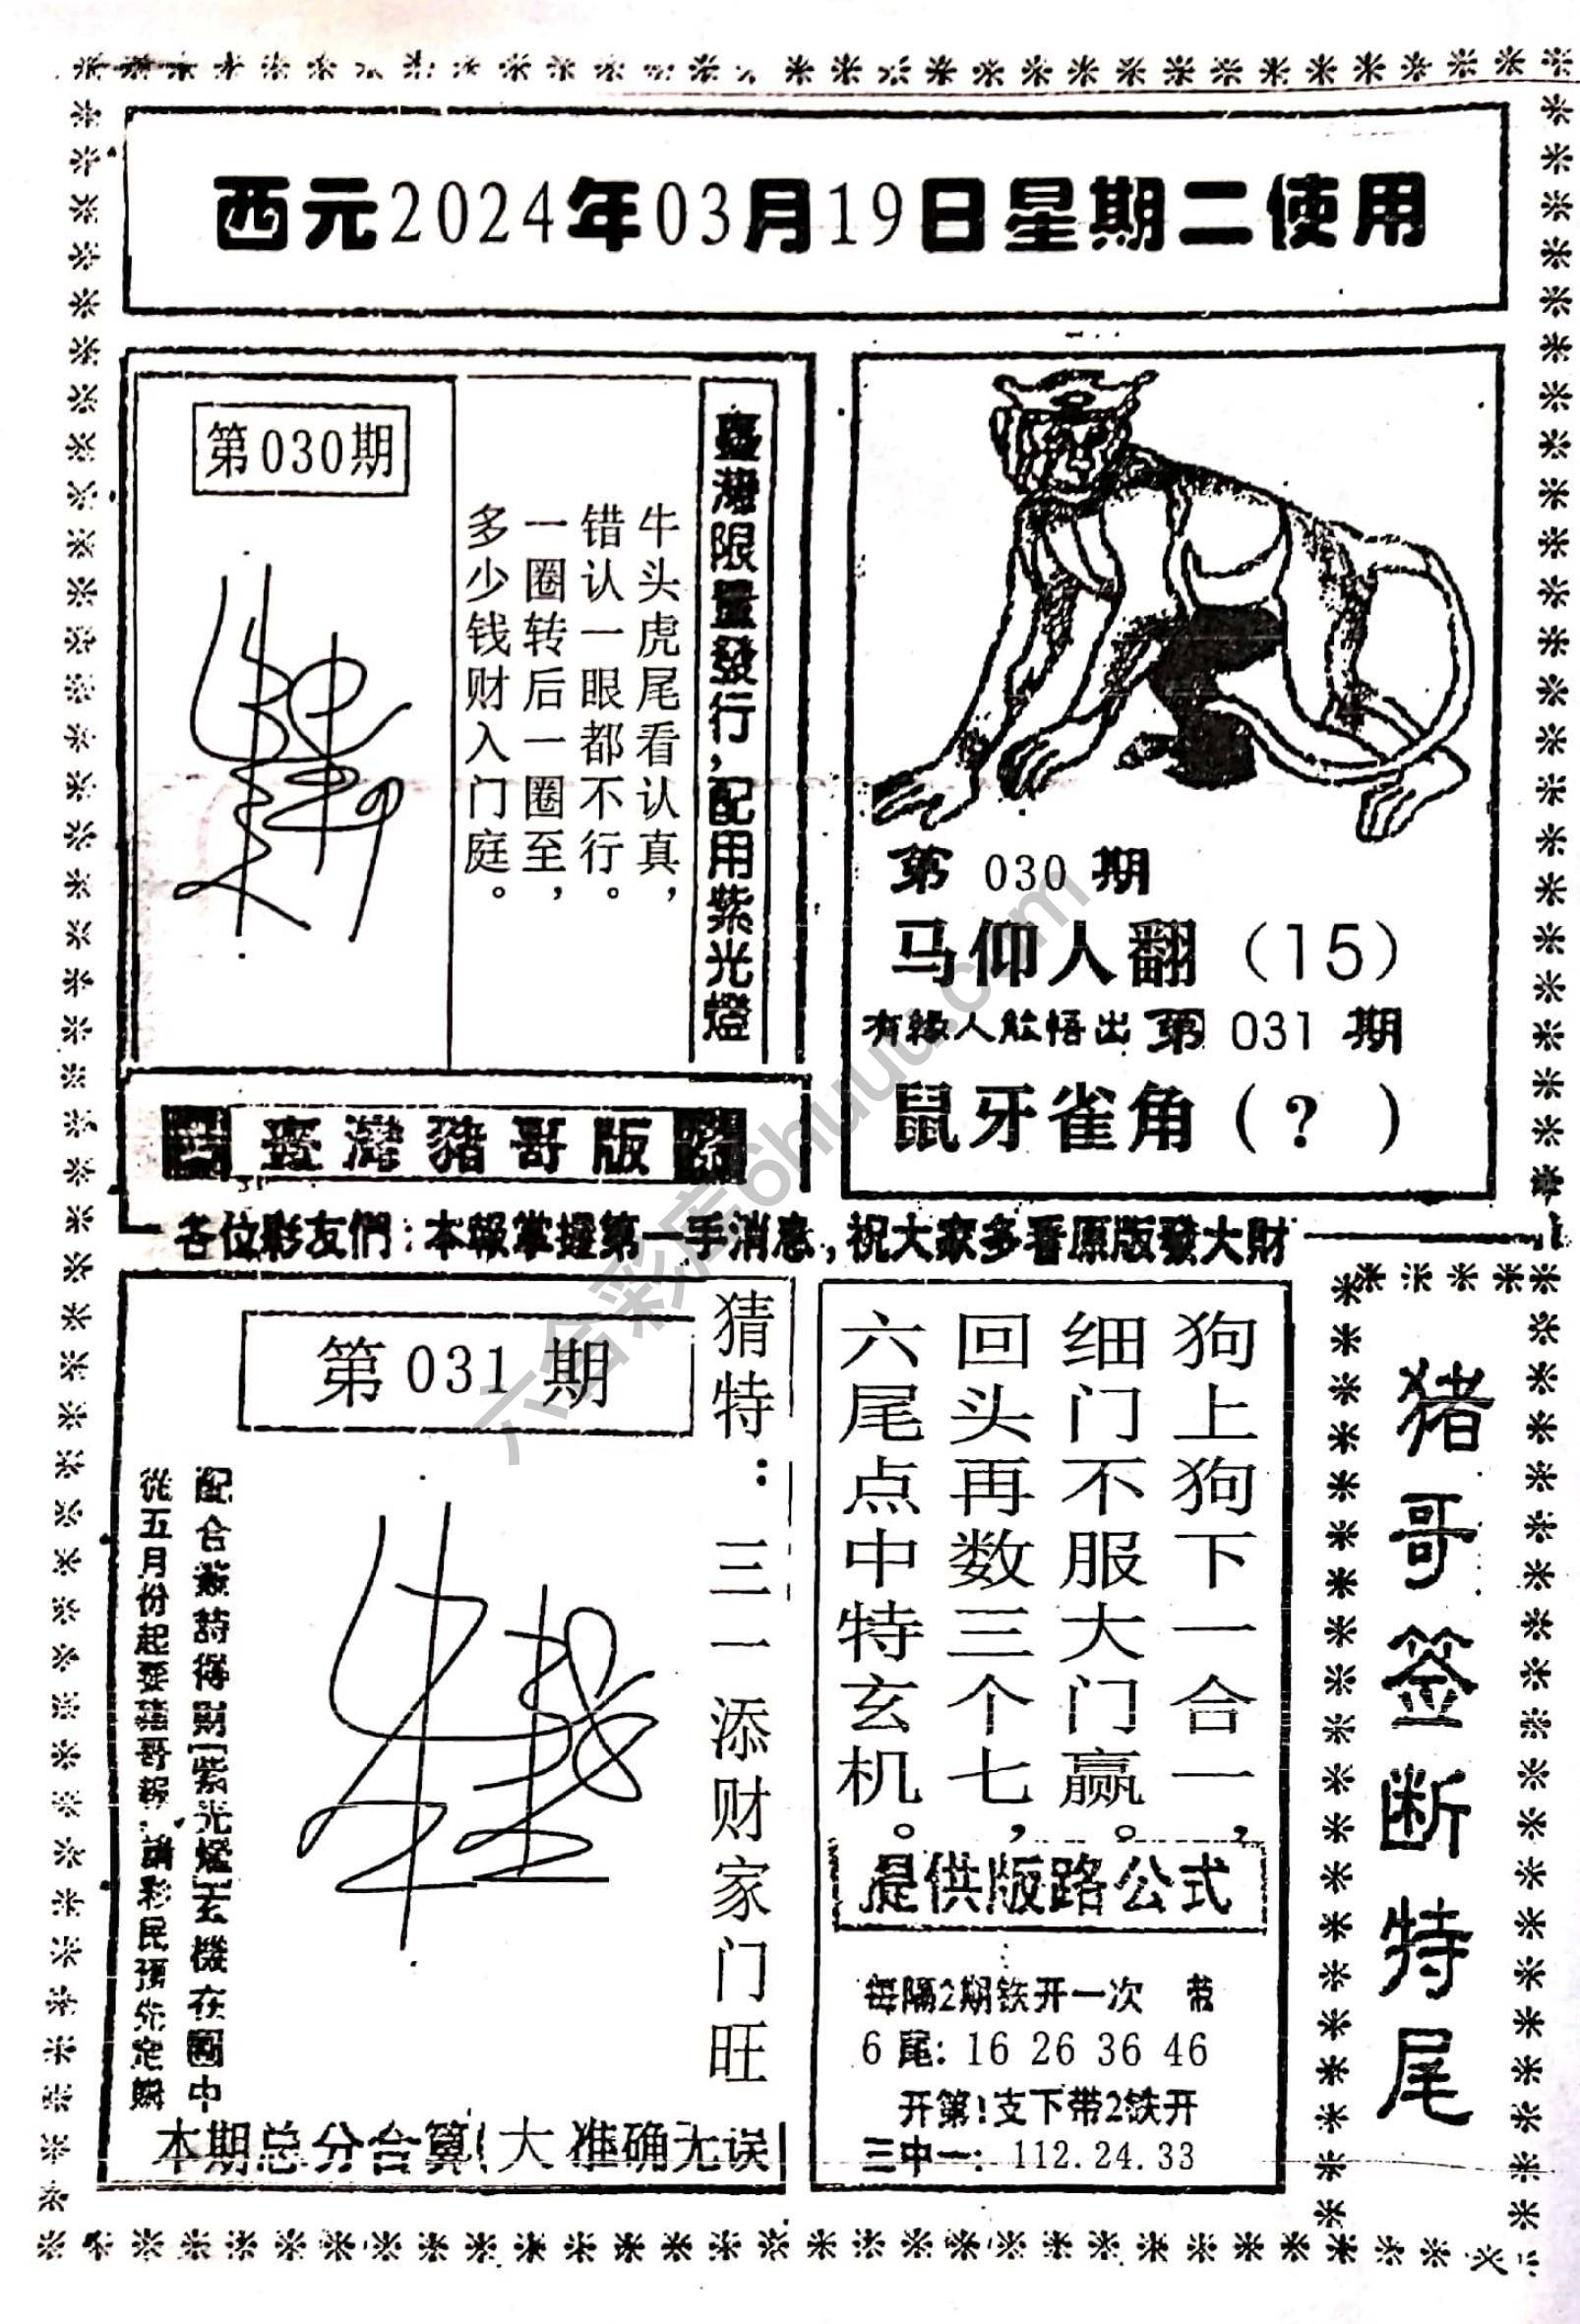 西元2024年03月19日星期二使用
第030期
臺灣限量發行，配用紫光燈
牛头虎尾看认真，
错认一眼都不行。
一圈转后一圈至，
多少钱财入门庭。
第 030 期
马仰人翻（15）
有緣人能悟出 第 031 期
鼠牙雀角（?）
臺灣豬哥版
各位彩友們：本報掌握第一手消息，祝大家多看原版發大財
第031期
猜特：三一添财家门旺
配合簽詩得財[紫光燈]玄機在圖中
從五月份起要豬哥報，請彩民預先定購
本期总分合算（大 准确无误
狗上狗下一合一，
细门不服大门赢。
回头再数三个七，
六尾点中特玄机。
提供版路公式
每隔2期铁开一次 带
6尾：16 26 36 46
开第1支下带2铁开
三中一：112.24.33
猪哥签断特尾
六合彩库6huuu.com